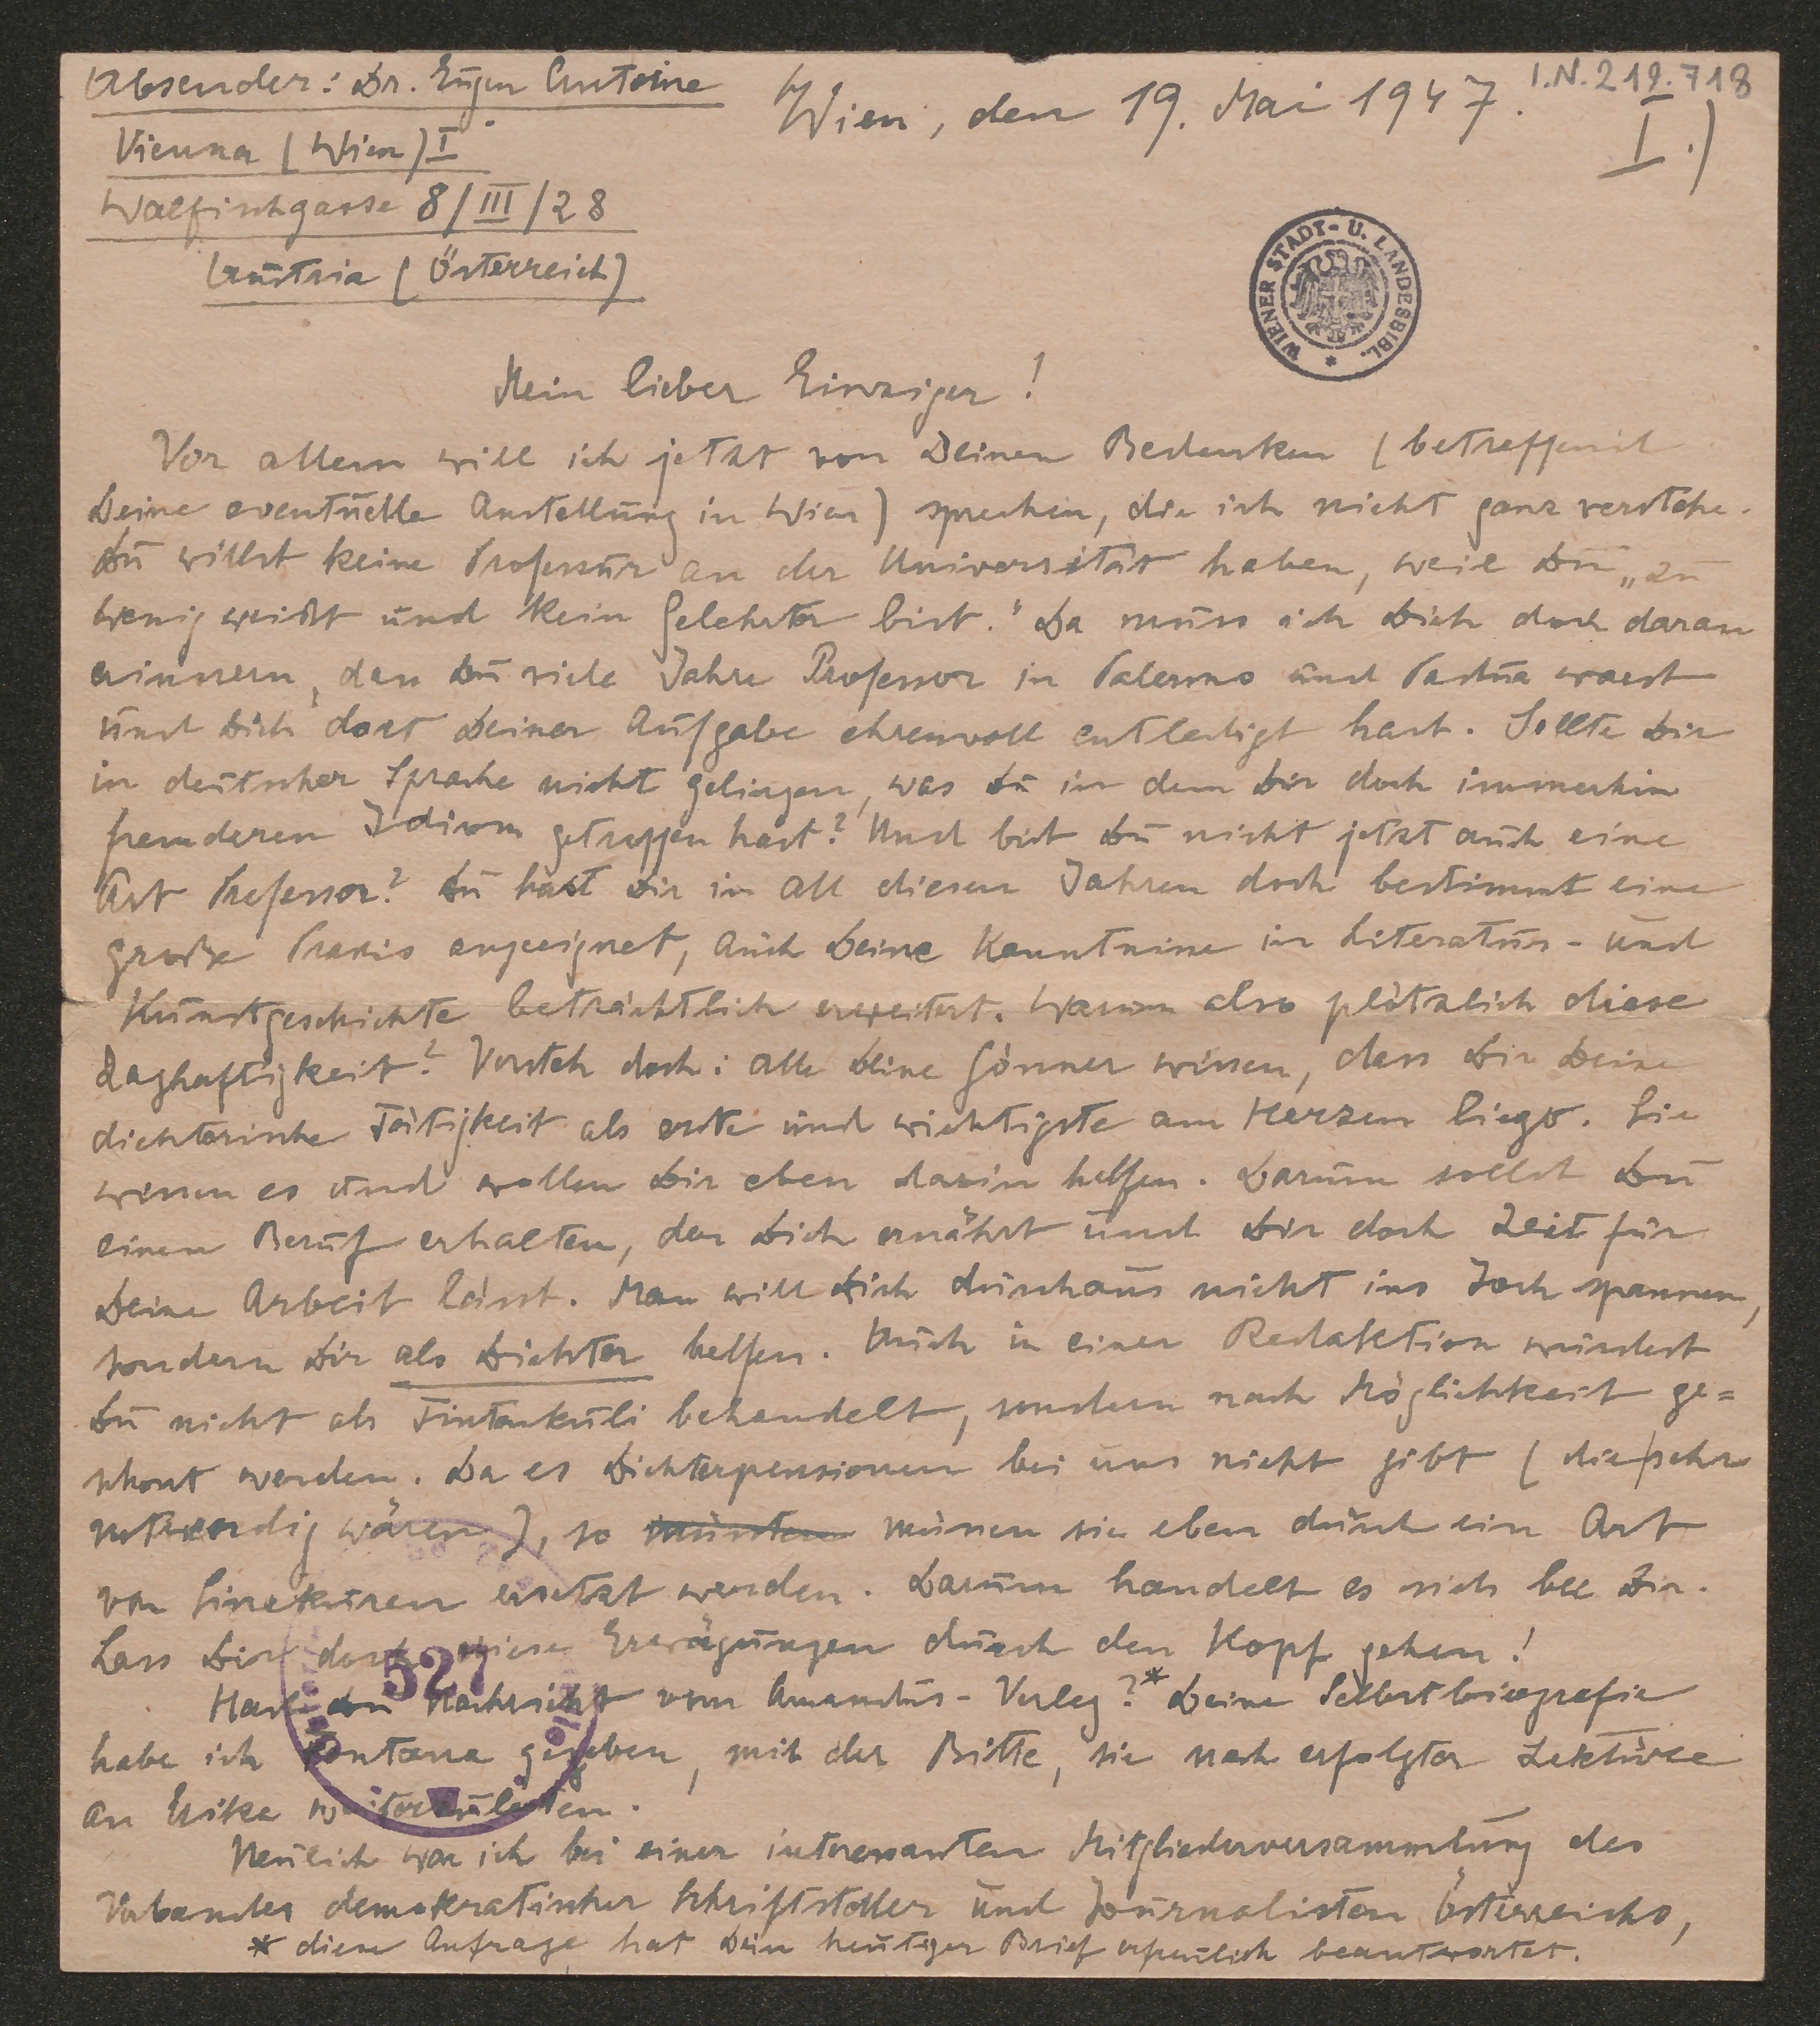 Absender: Dr. Eugen Antoine
Wien, den 19. Mai 1947.
I.N. 219.718
I.)
Vienna (Wien) I
Walfischgasse 8/III/28
Austria (Österreich)
WIENER STADT- U. LANDESBIBL. *
Mein lieber Einziger!
Vor allem will ich jetzt von Deinen Bedenken (betreffend
Deine eventuelle Anstellung in Wien) sprechen, die ich nicht ganz verstehe.
Du willst keine Professur an der Universität haben, weil Du „zu
wenig weißt und kein Gelehrter bist." Da muss ich Dich doch daran
erinnern, dass Du viele Jahre Professor in Palermo und Padua warst
und Dich dort Deiner Aufgabe ehrenvoll entledigt hast. Sollte Dir
in deutscher Sprache nicht gelingen, was Du in dem Dir doch immerhin
fremderen Idiom getroffen hast? Und bist Du nicht jetzt auch eine
Art Professor? Du hast Dir in all diesen Jahren doch bestimmt eine
große Praxis angeeignet, auch Deine Kenntnisse in Literatur- und
Kunstgeschichte beträchtlich erweitert. Warum also plötzlich diese
Zaghaftigkeit? Versteh doch: alle Deine Gönner wissen, dass Dir Deine
dichterische Tätigkeit als erste und wichtigste am Herzen liegt. Sie
wissen es und wollen Dir eben darin helfen. Darum sollst Du
einen Beruf erhalten, der Dich ernährt und Dir doch Zeit für
Deine Arbeit lässt. Man will Dich durchaus nicht ins Joch spannen,
sondern Dir als Dichter helfen. Auch in einer Redaktion würdest
Du nicht als Tintenkuli behandelt, sondern nach Möglichkeit ge=
schont werden. Da es Dichterpensionen bei uns nicht gibt (die sehr
notwendig wären), so müssten müssen sie eben durch ein Art
von Sinekuren ersetzt werden. Darum handelt es sich bei Dir.
Lass Dir doch diese Erwägungen durch den Kopf gehen!
527
Hast Du Nachricht vom Amandus-Verlag?* Deine Selbstbiografie
habe ich Fontana gegeben, mit der Bitte, sie nach erfolgter Lektüre
an Mika weiterzuleiten.
Neulich war ich bei einer interessanten Mitgliederversammlung des
Verbandes demokratischer Schriftsteller und Journalisten Österreichs,
* diese Anfrage hat Dein heutiger Brief erfreulich beantwortet.